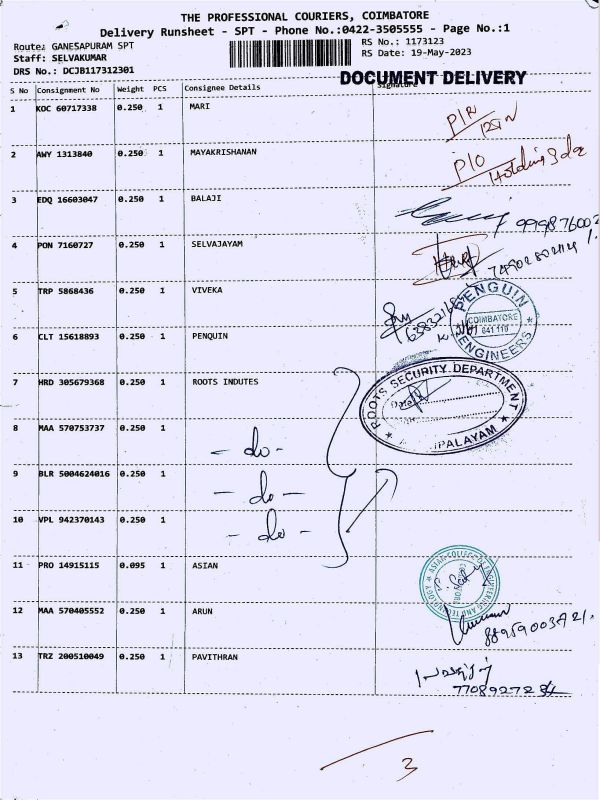 THE PROFESSIONAL COURIERS, COIMBATORE
Delivery Runsheet - SPT - Phone No.:0422-3505555 - Page No.:1
Route: GANESAPURAM SPT
RS No.: 1173123
Staff: SELVAKUMAR
RS Date: 19-May-2023
DRS No.: DCJB117312301
DOCUMENT DELIVERY
S No Consignment No Weight PCS Consignee Details Signature
1 KOC 60717338 0.250 1 MARI
2 AWY 1313840 0.250 1 MAYAKRISHANAN
P/O
3 EDQ 16603047 0.250 1 BALAJI
4 PON 7160727 0.250 1 SELVAJAYAM
5 TRP 5868436 0.250 1 VIVEKA
PENGUIN
COIMBATORE
641 110
ENGINEERS
6 CLT 15618893 0.250 1 PENQUIN
7 HRD 305679368 0.250 1 ROOTS INDUTES
ROOTS SECURITY DEPARTMENT
8 MAA 570753737 0.250 1 - do -
9 BLR 5004624016 0.250 1 - do -
10 VPL 942370143 0.250 1 - do -
11 PRO 14915115 0.095 1 ASIAN
ASIAN COLLEGE OF ENGINEERING AND TECHNOLOGY
12 MAA 570405552 0.250 1 ARUN
13 TRZ 200510049 0.250 1 PAVITHRAN
3